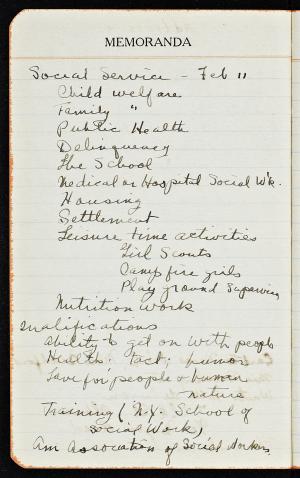 MEMORANDA
Social Service - Feb 11
Child welfare
Family "
Public Health
Delinquency
The School
Medical or Hospital Social W'k.
Housing
Settlement
Leisure time activities
Girl Scouts
Camp fire girls
Play ground Supervising
Nutrition Work
Qualifications
ability to get on with people
Health. tact; humor
Love for people & human
nature
Training (N.Y. School of
Social Work)
Am Association of Social Workers